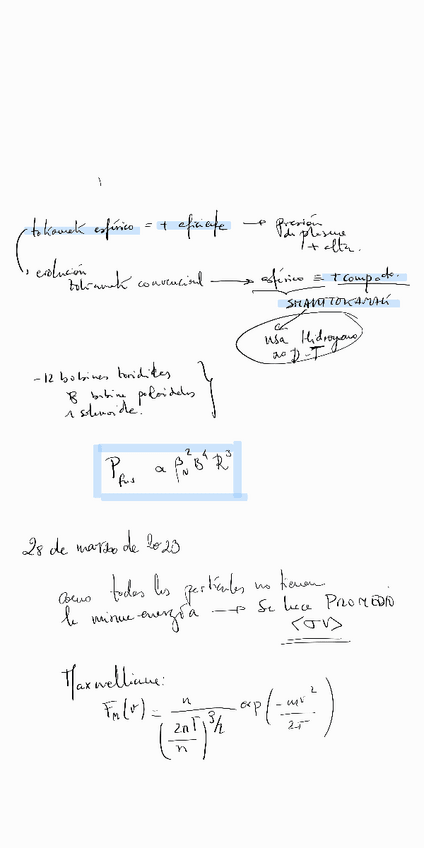 tokamak esférico = + eficiente → presión
de plasma
+ alta.
evolución
tokamak convencional → esférico = + compacto.
SMART TOKAMAK
usa Hidrógeno
no D-T
- 12 bobinas toroidales
8 bobinas poloidales
1 solenoide.
P_fus ∝ β_N^2 B^4 R^3
28 de marzo de 2023
como todas las partículas no tienen
la misma energía → se hace PROMEDIO
<σv>
Maxwelliana:
F_M(v) = n / (2πT/n)^{3/2} exp(-mv^2/2T)